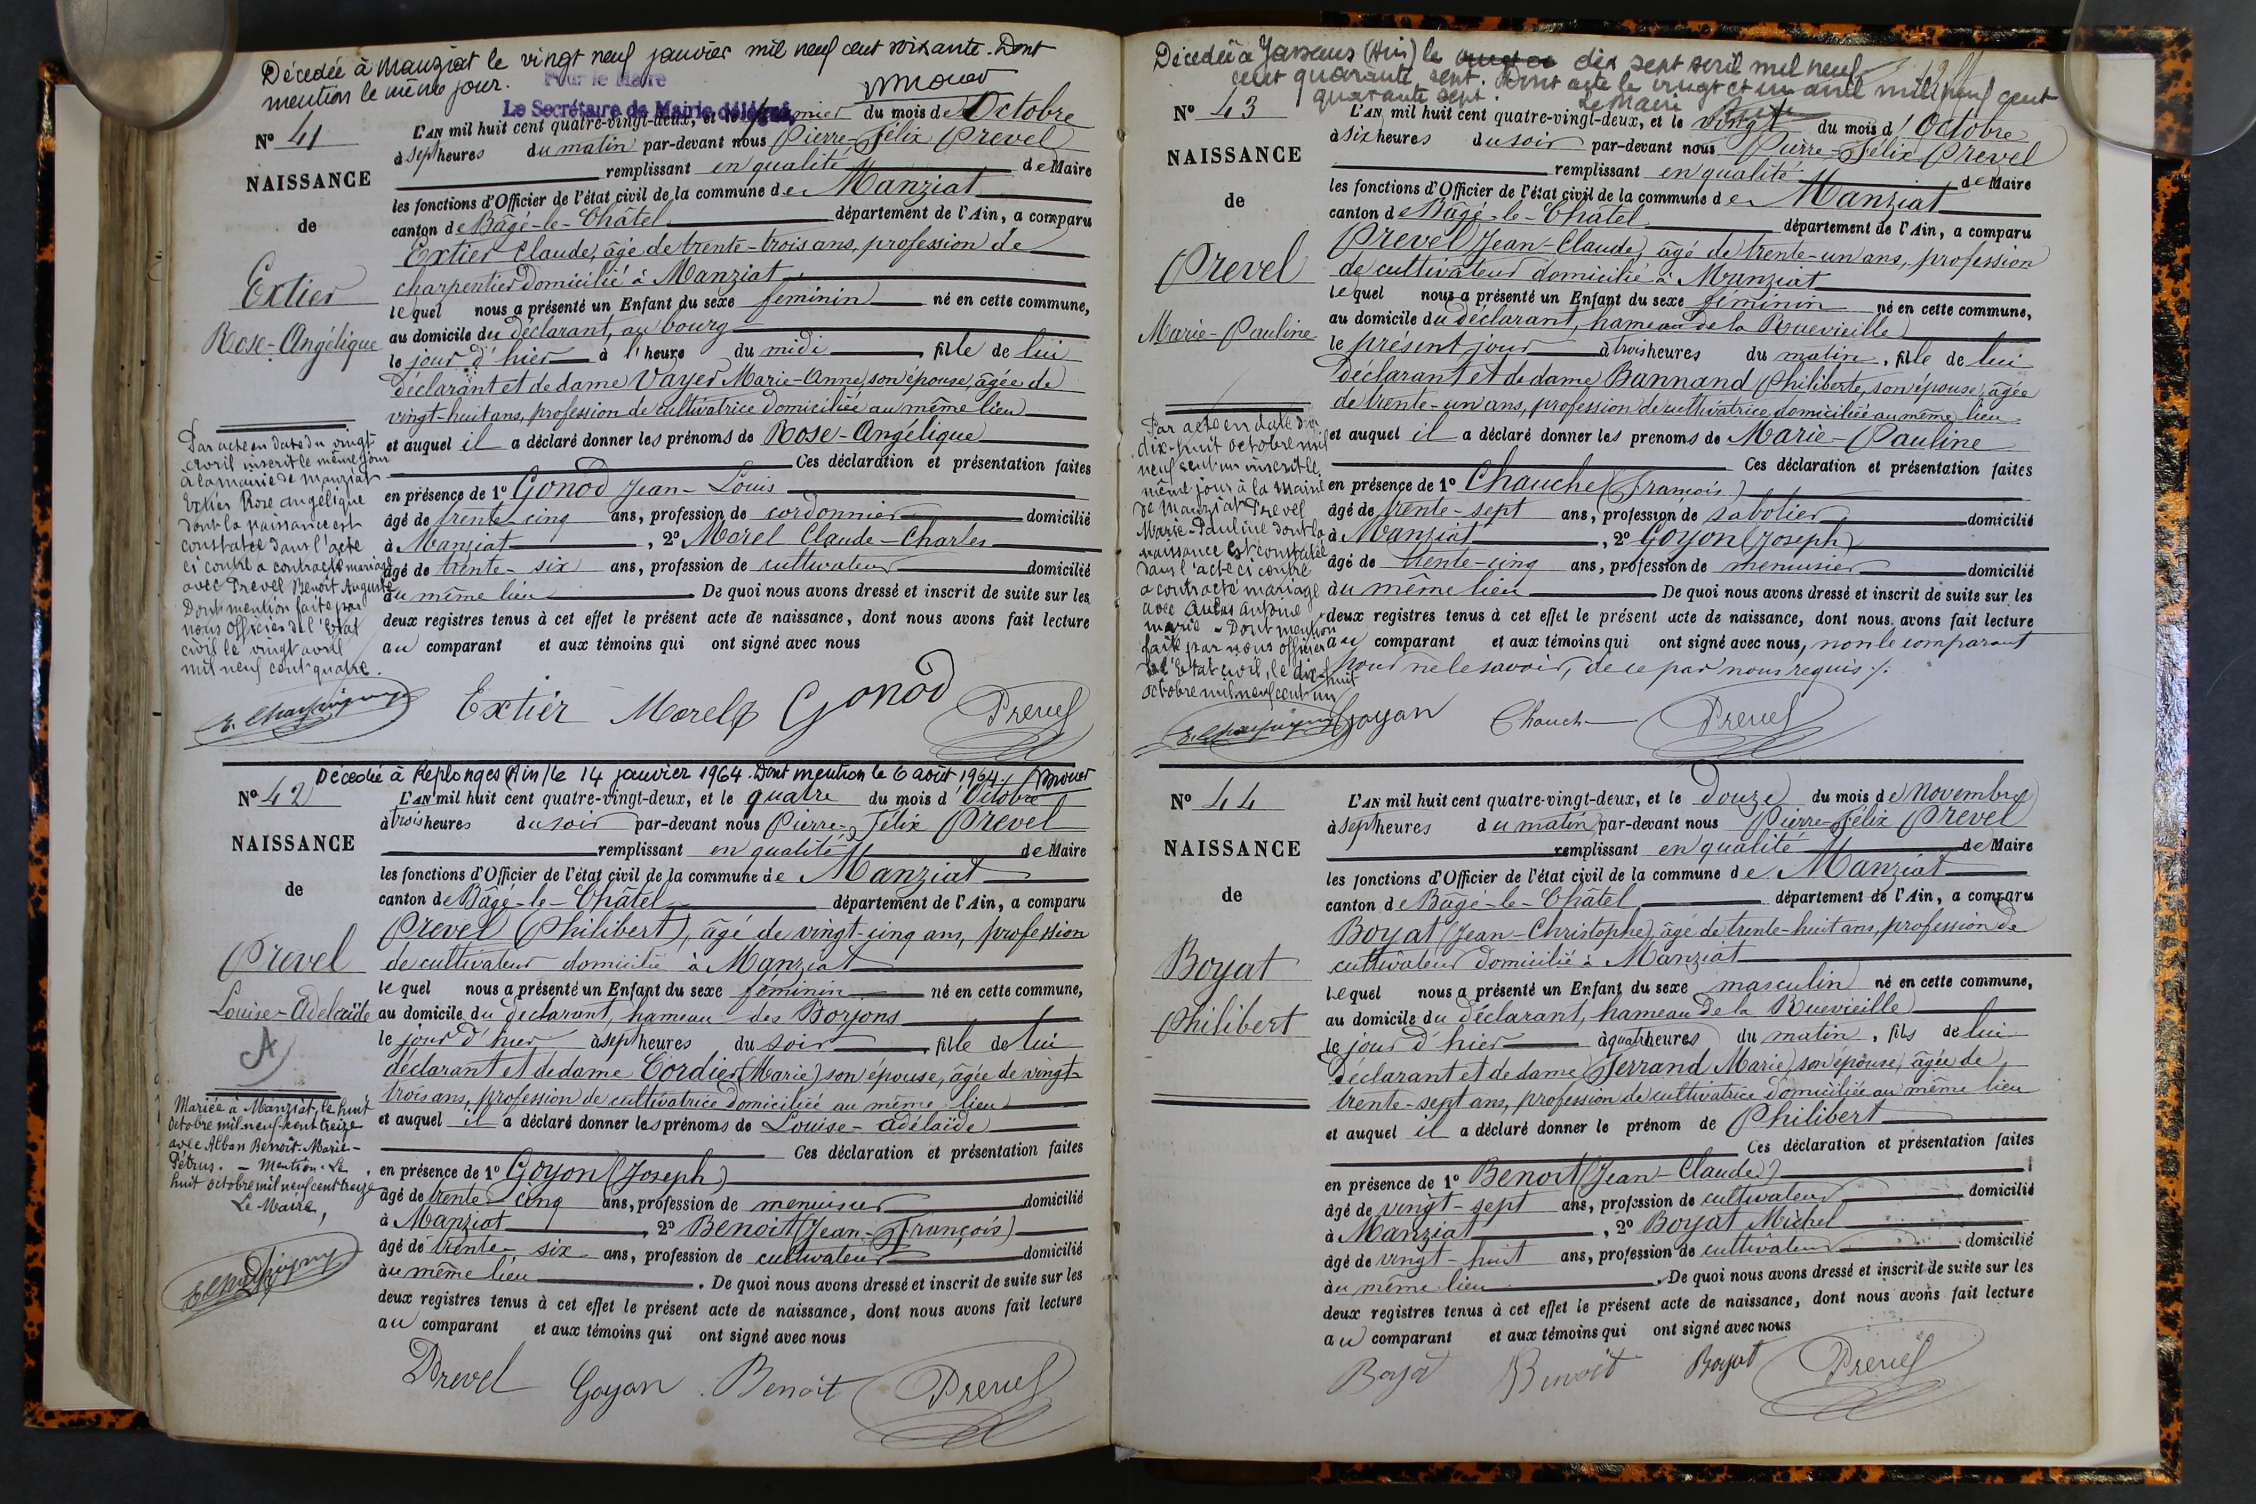 Décédée à Manziat le vingt neuf janvier mil neuf cent soixante. Dont
mention le même jour.
Pour le Maire
Le Secrétaire de Mairie délégué,
Nº 41
NAISSANCE
de
Extier
Rose-Angélique
L'AN mil huit cent quatre-vingt-deux, et le premier du mois de Octobre
à sept heures du matin par-devant nous Pierre-Félix Prevel
remplissant en qualité de Maire
les fonctions d'Officier de l'état civil de la commune de Manziat
canton de Bâgé-le-Châtel département de l'Ain, a comparu
Extier Claude, âgé de trente-trois ans, profession de
charpentier domicilié à Manziat
lequel nous a présenté un Enfant du sexe féminin né en cette commune,
au domicile du déclarant, au bourg
le jour d'hier à l'heure du midi, fille de lui
déclarant et de dame Vayer Marie-Anne, son épouse, âgée de
vingt-huit ans, profession de cultivatrice domiciliée au même lieu
et auquel il a déclaré donner les prénoms de Rose-Angélique
Ces déclaration et présentation faites
en présence de 1º Gonod Jean-Louis
âgé de trente-cinq ans, profession de cordonnier domicilié
à Manziat, 2º Morel Claude-Charles
âgé de trente-six ans, profession de cultivateur domicilié
au même lieu. De quoi nous avons dressé et inscrit de suite sur les
deux registres tenus à cet effet le présent acte de naissance, dont nous avons fait lecture
au comparant et aux témoins qui ont signé avec nous
Par acte en date du vingt
avril inscrit le même jour
à la mairie de Manziat
Extier Rose Angélique
dont la naissance est
constatée dans l'acte
ci contre a contracté mariage
avec Prevel Benoît Auguste
Dont mention faite par
nous officier de l'Etat
civil le vingt avril
mil neuf cent quatre.
Extier Morel Gonod Prevel
Décédée à Replonges (Ain) le 14 janvier 1964. Dont mention le 6 août 1964.
Nº 42
NAISSANCE
de
Prevel
Louise-Adelaïde
L'AN mil huit cent quatre-vingt-deux, et le quatre du mois d'Octobre
à trois heures du soir par-devant nous Pierre-Félix Prevel
remplissant en qualité de Maire
les fonctions d'Officier de l'état civil de la commune de Manziat
canton de Bâgé-le-Châtel département de l'Ain, a comparu
Prevel (Philibert), âgé de vingt-cinq ans, profession
de cultivateur domicilié à Manziat
lequel nous a présenté un Enfant du sexe féminin né en cette commune,
au domicile du déclarant, hameau des Borjons
le jour d'hier à sept heures du soir, fille de lui
déclarant et de dame Cordier (Marie) son épouse, âgée de vingt-
trois ans, profession de cultivatrice domiciliée au même lieu
et auquel il a déclaré donner les prénoms de Louise-Adélaïde
Ces déclaration et présentation faites
en présence de 1º Goyon (Joseph)
âgé de trente-cinq ans, profession de menuisier domicilié
à Manziat, 2º Benoit (Jean-François)
âgé de trente-six ans, profession de cultivateur domicilié
au même lieu. De quoi nous avons dressé et inscrit de suite sur les
deux registres tenus à cet effet le présent acte de naissance, dont nous avons fait lecture
au comparant et aux témoins qui ont signé avec nous
Mariée à Manziat, le huit
octobre mil neuf cent treize
avec Alban Benoît-Marie-
Pétrus. - Mention. Le
huit octobre mil neuf cent treize
Le Maire,
Prevel Goyon Benoit Prevel
Décédée à Jassans (Ain) le dix sept avril mil neuf
cent quarante sept. Dont acte le vingt et un avril mil neuf cent
quarante sept. Le Maire
Nº 43
NAISSANCE
de
Prevel
Marie-Pauline
L'AN mil huit cent quatre-vingt-deux, et le vingt du mois d'Octobre
à six heures du soir par-devant nous Pierre-Félix Prevel
remplissant en qualité de Maire
les fonctions d'Officier de l'état civil de la commune de Manziat
canton de Bâgé-le-Châtel département de l'Ain, a comparu
Prevel (Jean-Claude), âgé de trente-un ans, profession
de cultivateur domicilié à Manziat
lequel nous a présenté un Enfant du sexe féminin né en cette commune,
au domicile du déclarant, hameau de la Ruevieille
le présent jour à trois heures du matin, fille de lui
déclarant et de dame Bannand Philiberte, son épouse, âgée
de trente-un ans, profession de cultivatrice domiciliée au même lieu
et auquel il a déclaré donner les prénoms de Marie-Pauline
Ces déclaration et présentation faites
en présence de 1º Chauche (François)
âgé de trente-sept ans, profession de sabotier domicilié
à Manziat, 2º Goyon (Joseph)
âgé de trente-cinq ans, profession de menuisier domicilié
au même lieu. De quoi nous avons dressé et inscrit de suite sur les
deux registres tenus à cet effet le présent acte de naissance, dont nous avons fait lecture
au comparant et aux témoins qui ont signé avec nous, non le comparant
pour ne le savoir, de ce par nous requis./.
Par acte en date du
dix-huit octobre mil
neuf cent un inscrit le
même jour à la mairie
de Manziat Prevel
Marie-Pauline dont la
naissance est constatée
dans l'acte ci contre
a contracté mariage
avec Antoine
Marie - Dont mention
faite par nous officier
de l'Etat civil, le dix-huit
octobre mil neuf cent un
Goyon Chauche Prevel
Nº 44
NAISSANCE
de
Boyat
Philibert
L'AN mil huit cent quatre-vingt-deux, et le douze du mois de Novembre
à sept heures du matin par-devant nous Pierre-Félix Prevel
remplissant en qualité de Maire
les fonctions d'Officier de l'état civil de la commune de Manziat
canton de Bâgé-le-Châtel département de l'Ain, a comparu
Boyat (Jean-Christophe), âgé de trente-huit ans, profession de
cultivateur domicilié à Manziat
lequel nous a présenté un Enfant du sexe masculin né en cette commune,
au domicile du déclarant, hameau de la Ruevieille
le jour d'hier à quatre heures du matin, fils de lui
déclarant et de dame Ferrand Marie, son épouse, âgée de
trente-sept ans, profession de cultivatrice domiciliée au même lieu
et auquel il a déclaré donner le prénom de Philibert
Ces déclaration et présentation faites
en présence de 1º Benoit (Jean-Claude)
âgé de vingt-sept ans, profession de cultivateur domicilié
à Manziat, 2º Boyat Michel
âgé de vingt-huit ans, profession de cultivateur domicilié
au même lieu. De quoi nous avons dressé et inscrit de suite sur les
deux registres tenus à cet effet le présent acte de naissance, dont nous avons fait lecture
au comparant et aux témoins qui ont signé avec nous
Boyat Benoit Boyat Prevel